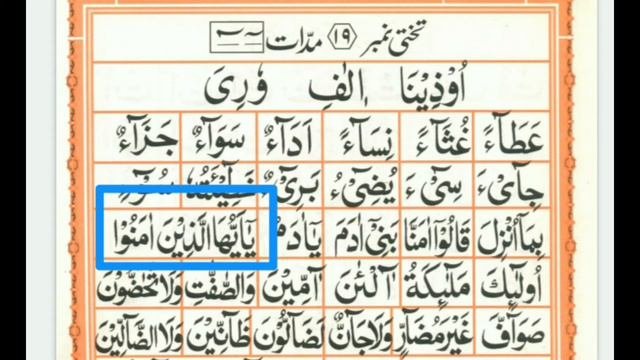 تختی نمبر ۱۹ مدّات
اُوْذِيْنَا اِلٰفِ وٗرِيَ
عَطَآءً غُثَآءً نِسَآءً اَدَآءٌ سَوَآءٌ جَزَآءٌ
جِايْٓءَ سِيْٓءَ يُضِيْٓءُ بَرِيْٓءٌ خَطِيْٓئَتُهٗ سُوْٓءٌ
بِمَآ اُنْزِلَ قَالُوْٓا اٰمَنَّا بَنِيْٓ اٰدَمَ يٰٓاٰدَمُ يٰٓاَيُّهَا الَّذِيْنَ اٰمَنُوْا
اُولٰٓئِكَ مَلٰٓئِكَةُ آٰلْئٰنَ آٰمِّيْنَ وَالصّٰٓفّٰتِ وَلَا تَحٰٓضُّوْنَ
صَوَآفَّ غَيْرَ مُضَآرٍّ وَلَا جَآنٌّ لَضَآلُّوْنَ ظَآنِّيْنَ وَلَا الضَّآلِّيْنَ